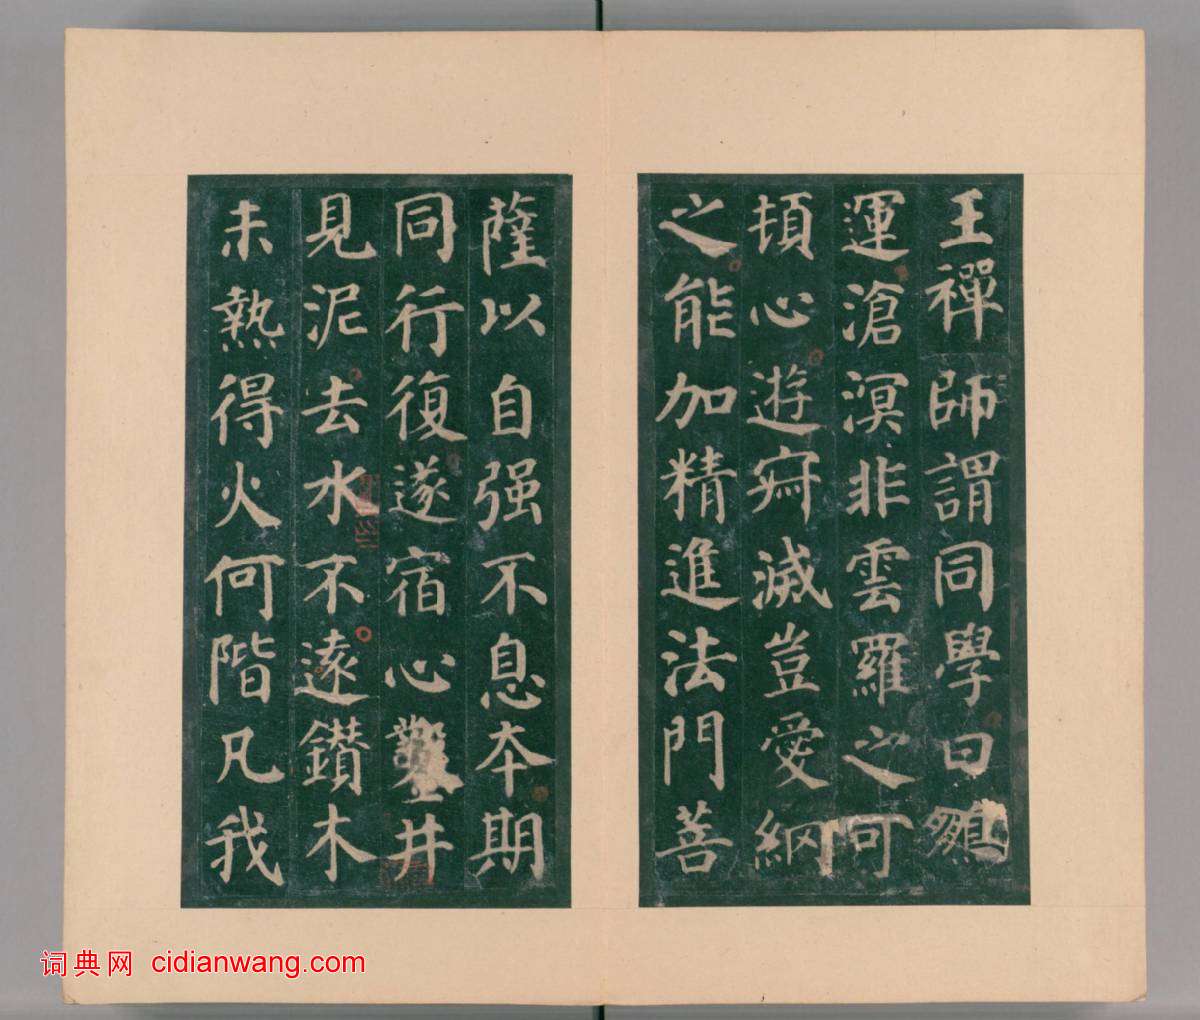 王禪師謂同學曰鵬
運滄溟非雲羅之可
頓心遊寂滅豈愛網
之能加精進法門菩
薩以自强不息本期
同行復遂宿心鑿井
見泥去水不遠鑽木
未熱得火何階凡我
词典网 cidianwang.com